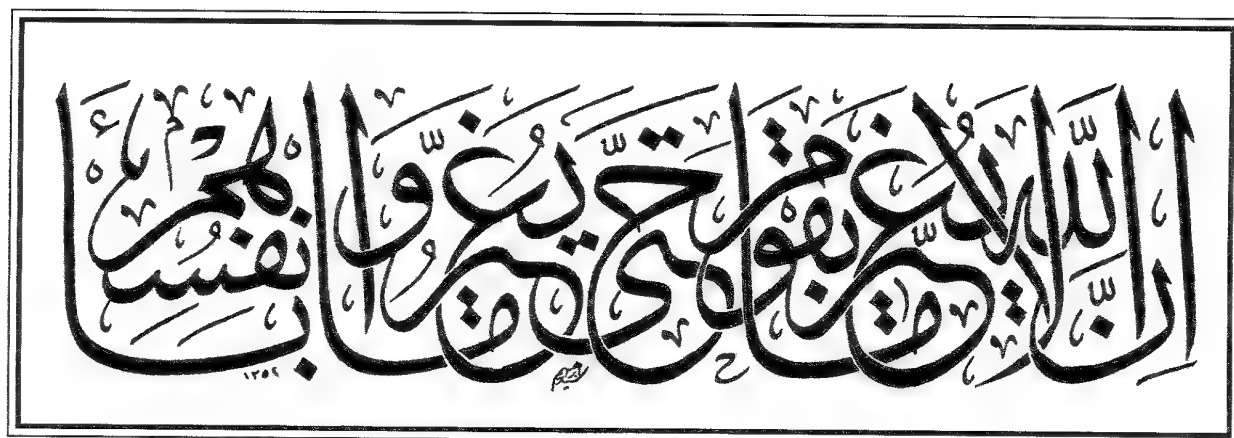 اِنَّ اللّٰهَ لَا يُغَيِّرُ مَا بِقَوْمٍ حَتّٰى يُغَيِّرُوا مَا بِاَنْفُسِهِمْ